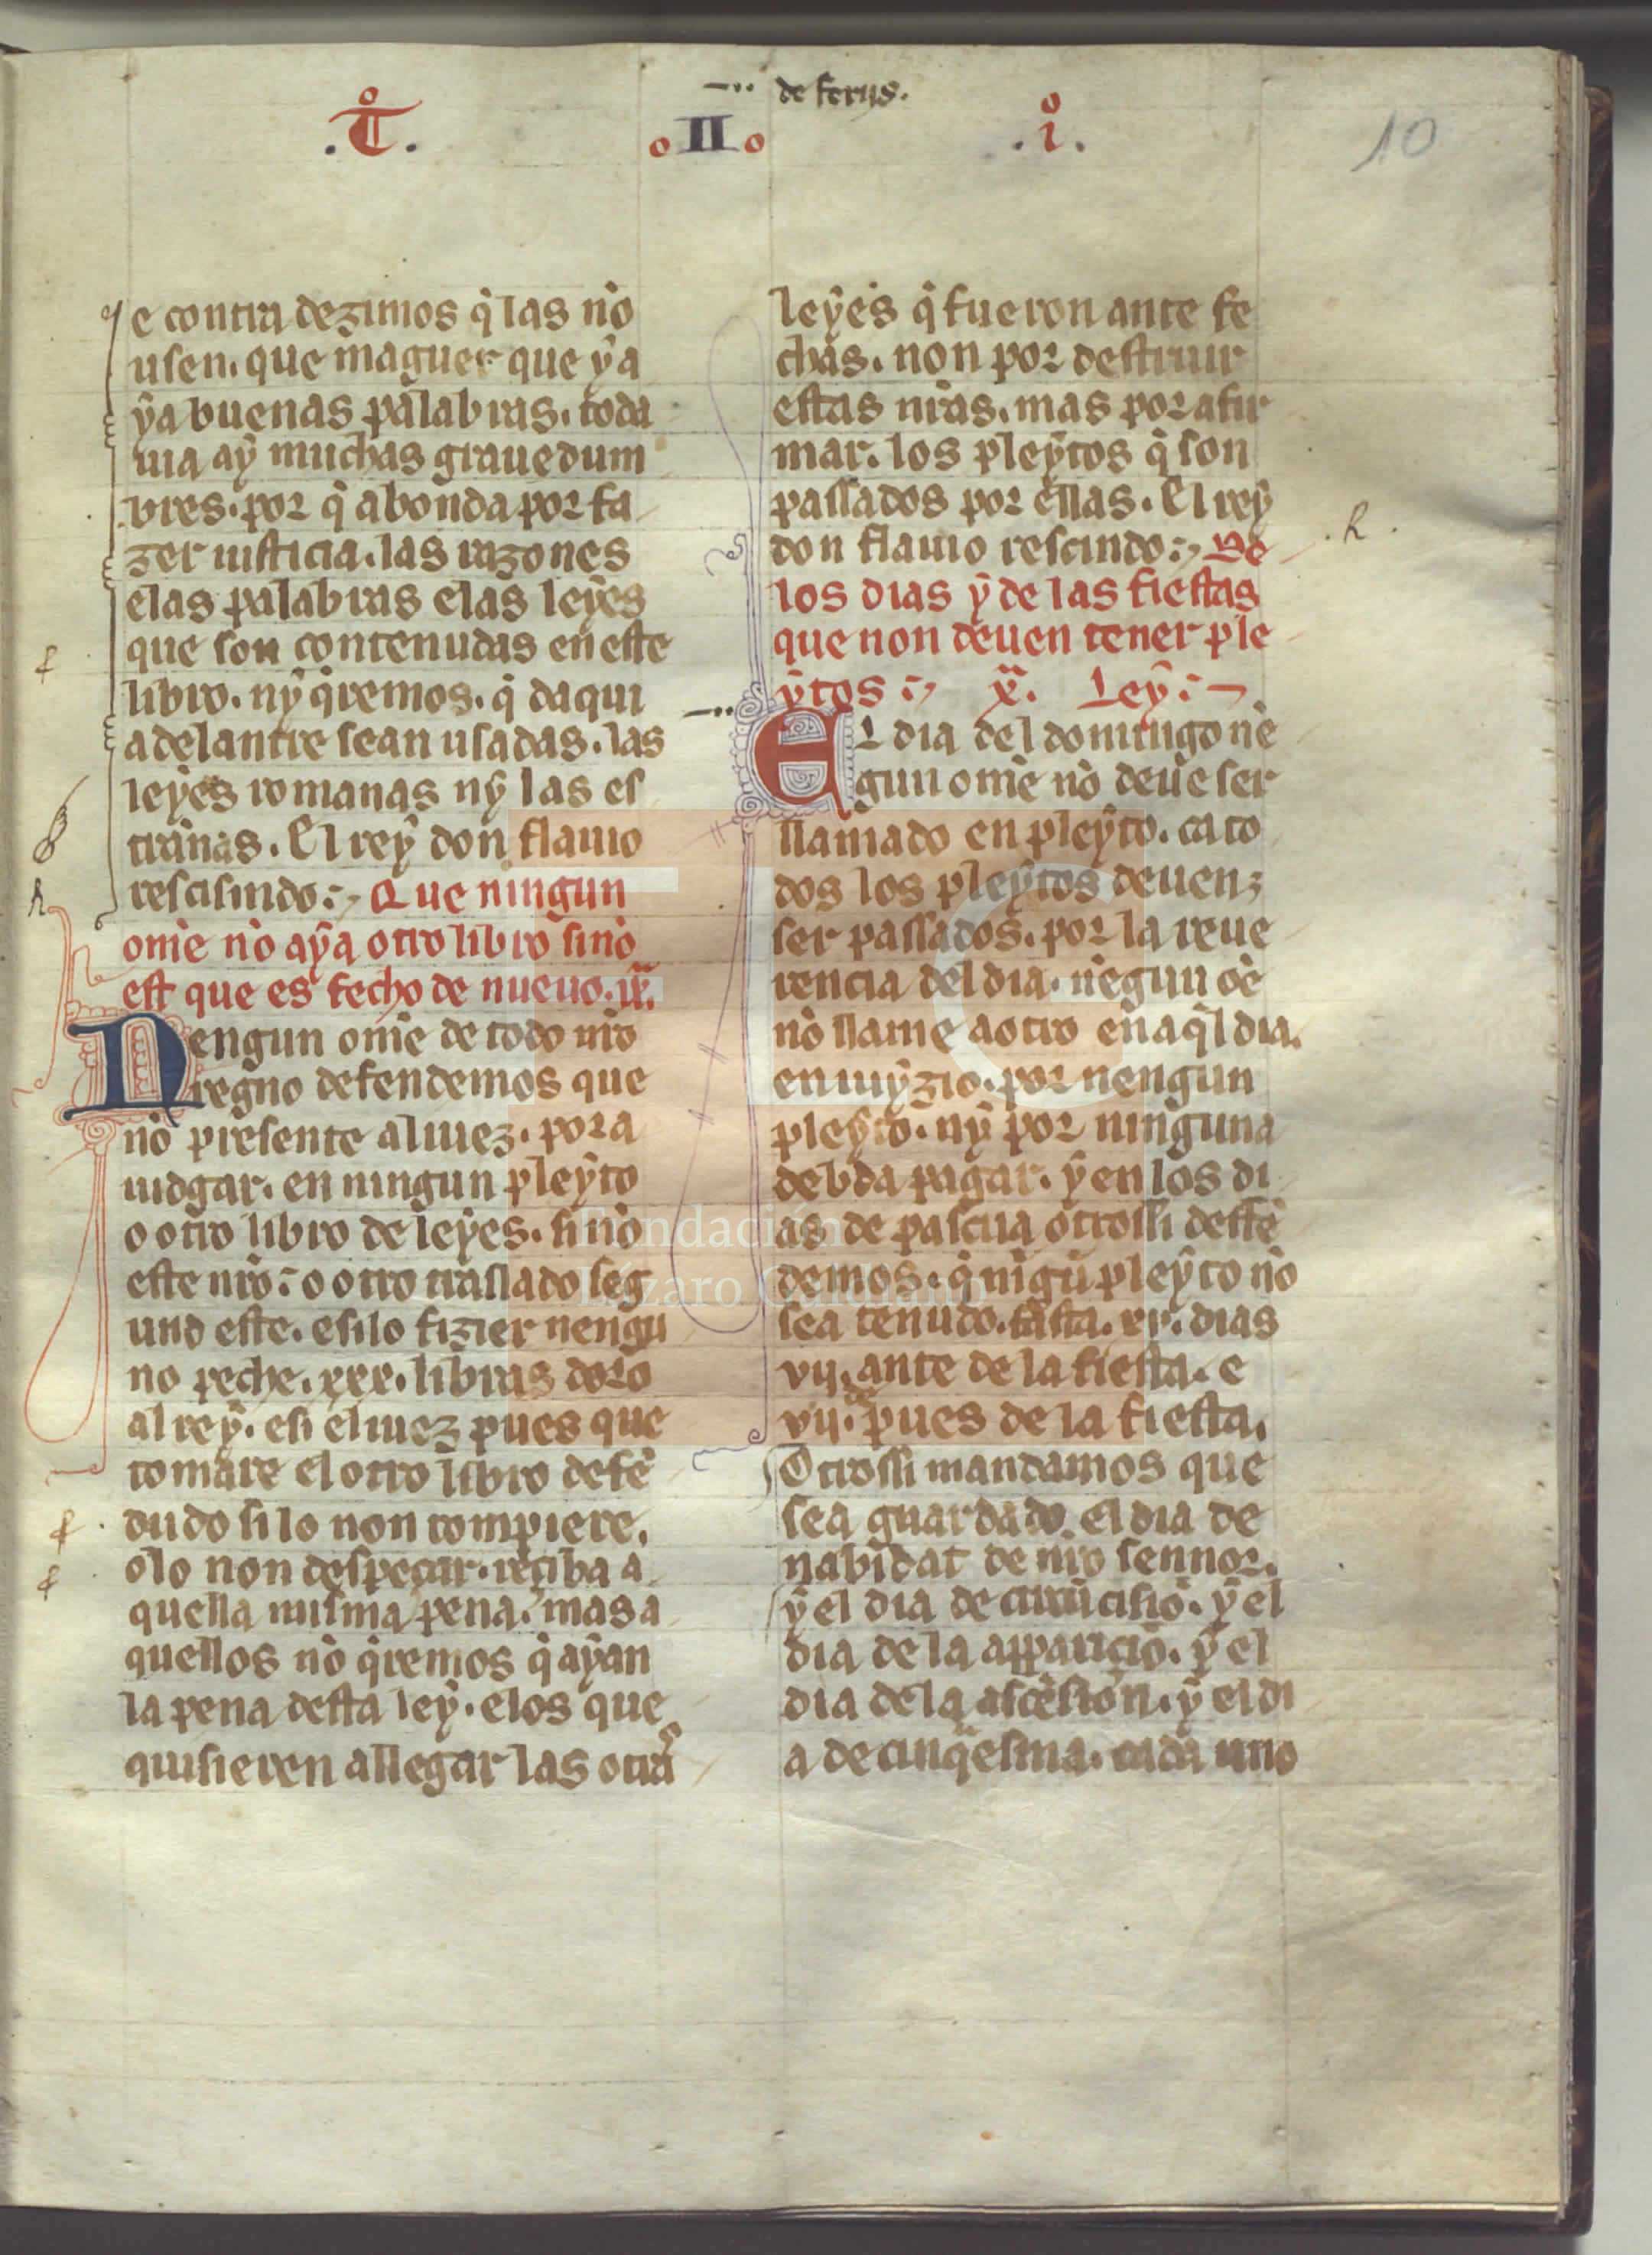 de feriis.
.T°. II .i°.
10
e contra dezimos q̉ las nȯ
usen. que maguer que ẏa
ẏa buenas palabras. toda
uia aẏ muchas grauedum
bres. por q̉ abonda por fa
zer iusticia. las razones
elas palabras elas leẏes
que son contenudas en este
libro. nẏ q̉remos. q̉ daqui
adelantre sean usadas. las
leẏes romanas nẏ las es
trañas. El reẏ don flauio
rescisindo :, Que ningun
om̄e nȯ aẏa otro libro sinȯ
est que es fecho de nueuo. ix.
Nengun om̄e de todo nr̄o
regno defendemos que
nȯ presente al iuez. pora
iudgar. en ningun pleẏto
o otro libro de leẏes. si nȯ
este nr̄o : o otro traslado seg
und este. e si lo fizier nengu
no peche. xxx. libras doro
al reẏ. e si el iuez pues que
tomare el otro libro defē
dudo si lo non rompiere.
o lo non despeçar. reciba a
quella misma pena. mas a
quellos nȯ q̉remos q̉ aẏan
la pena desta leẏ. e los que
quisieren allegar las otras
leẏes q̉ fueron ante fe
chas. non por destruir
estas nr̄as. mas por afir
mar. los pleẏtos q̉ son
passados por ellas. El reẏ
don flauio rescindo :, De
los dias ẏ de las fiestas
que non deuen tener ple
ẏtos :, x. Leẏ : ~
El dia del domingo nē
gun om̄e nȯ deue ser
llamado en pleẏto. ca to
dos los pleẏtos deuen
ser passados. por la reue
rencia del dia. nēgun oē
nȯ llame a otro en aq̉l dia.
en iuẏzio. por nengun
pleẏto. nẏ por ninguna
debda pagar. ẏ en los di
as de pascua otrossi defē
demos. q̉ nīgū pleẏto nȯ
sea tenudo. fasta. xv. dias
vij. ante de la fiesta. e
vij. pues de la fiesta.
Otrossi mandamos que
sea guardado el dia de
nabidat de nr̄o sennor.
ẏ el dia de circūcisiō. ẏ el
dia de la apparicio. ẏ el
dia de la ascēsion. ẏ el di
a de cinq̉esma. cada uno
Fundación
Lázaro Galdiano